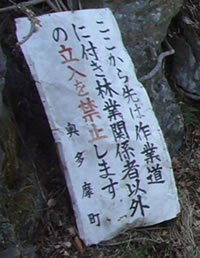 ここから先は作業道
に付き林業関係者以外
の立入を禁止します
奥多摩町